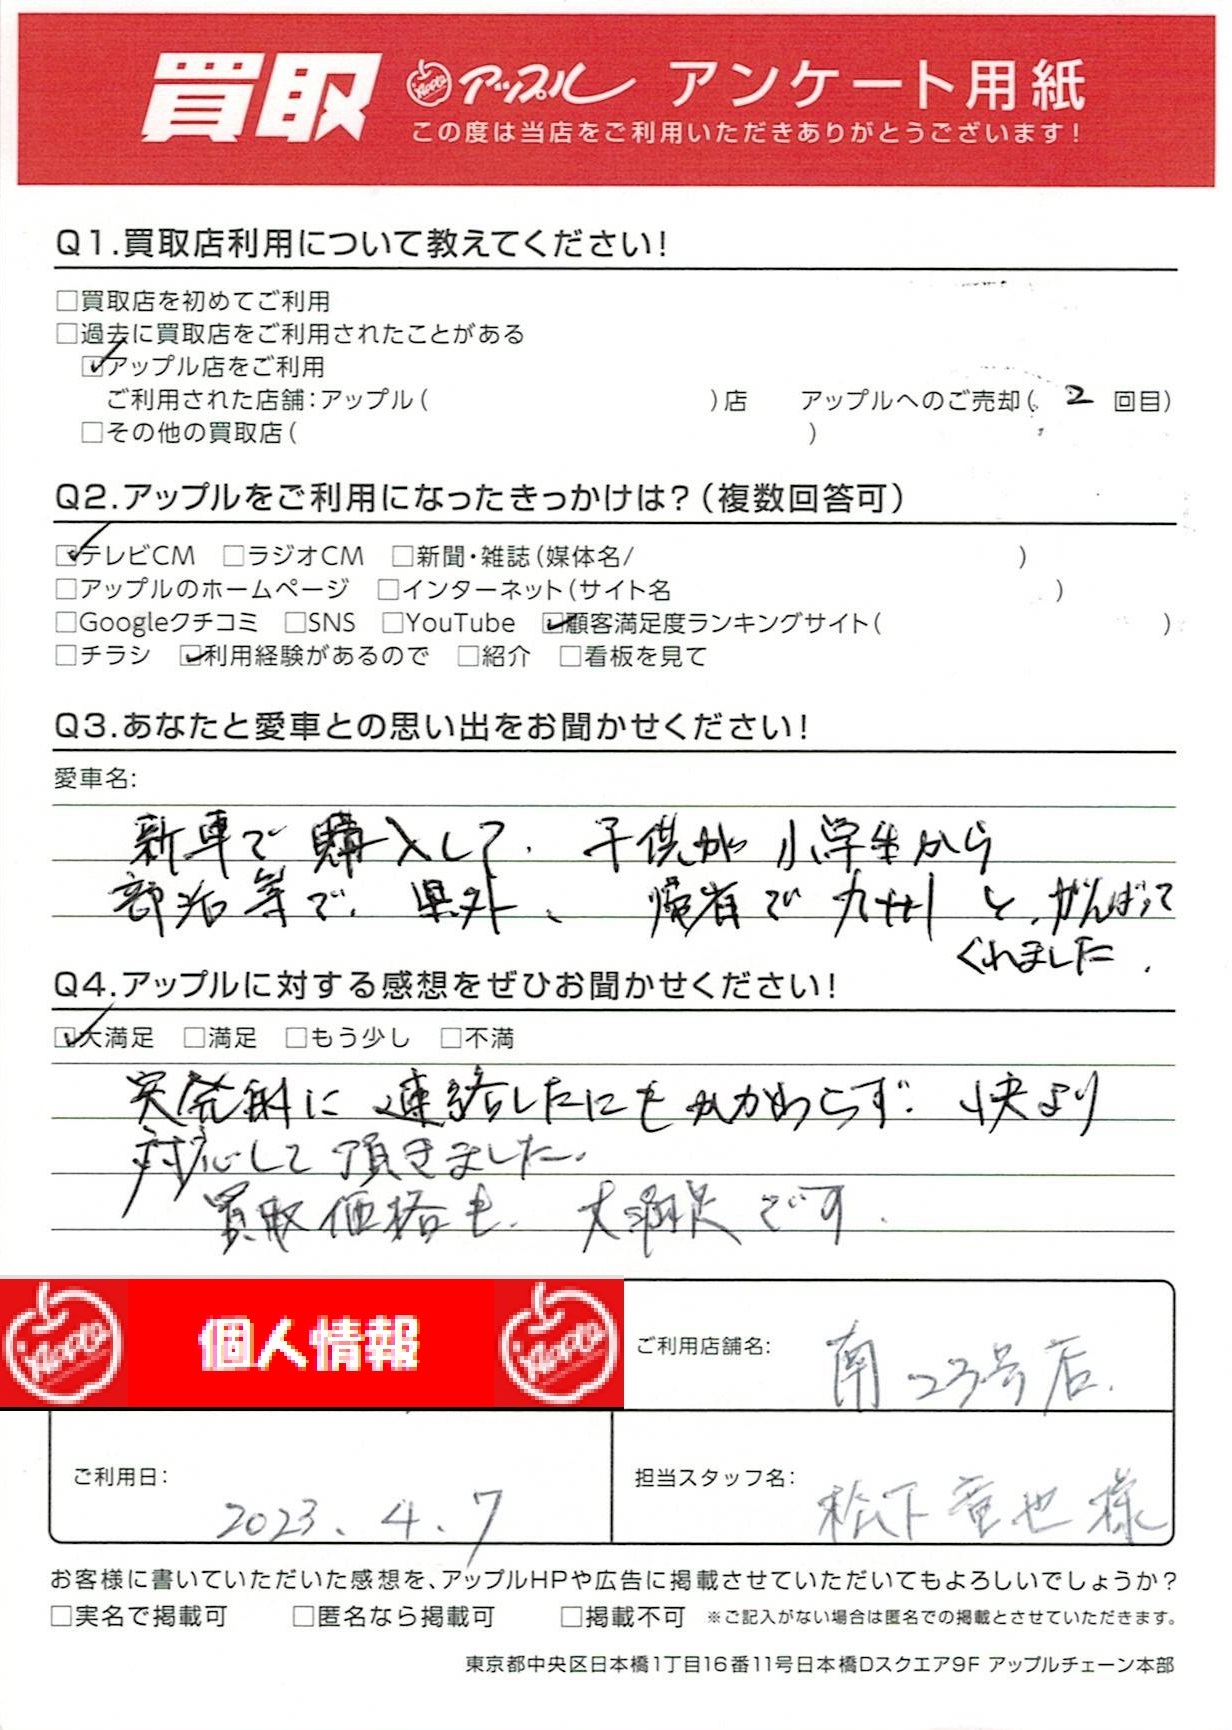 買取 Apple アップル アンケート用紙
この度は当店をご利用いただきありがとうございます!
Q1.買取店利用について教えてください!
□買取店を初めてご利用
□過去に買取店をご利用されたことがある
☑アップル店をご利用
ご利用された店舗:アップル( )店 アップルへのご売却( 2 回目)
□その他の買取店( )
Q2.アップルをご利用になったきっかけは?(複数回答可)
☑テレビCM □ラジオCM □新聞・雑誌(媒体名/ )
□アップルのホームページ □インターネット(サイト名 )
□Googleクチコミ □SNS □YouTube ☑顧客満足度ランキングサイト( )
□チラシ ☑利用経験があるので □紹介 □看板を見て
Q3.あなたと愛車との思い出をお聞かせください!
愛車名:
新車で購入して、子供が小学生から
部活等で、県外、帰省で九州と、がんばって
くれました.
Q4.アップルに対する感想をぜひお聞かせください!
☑大満足 □満足 □もう少し □不満
突発的に連絡したにもかかわらず、快より
対応して頂きました.
買取価格も、大満足です.
Apple 個人情報 Apple
ご利用店舗名: 南23号店.
ご利用日: 2023.4.7
担当スタッフ名: 松下竜也様
お客様に書いていただいた感想を、アップルHPや広告に掲載させていただいてもよろしいでしょうか?
□実名で掲載可 □匿名なら掲載可 □掲載不可 ※ご記入がない場合は匿名での掲載とさせていただきます。
東京都中央区日本橋1丁目16番11号日本橋Dスクエア9F アップルチェーン本部